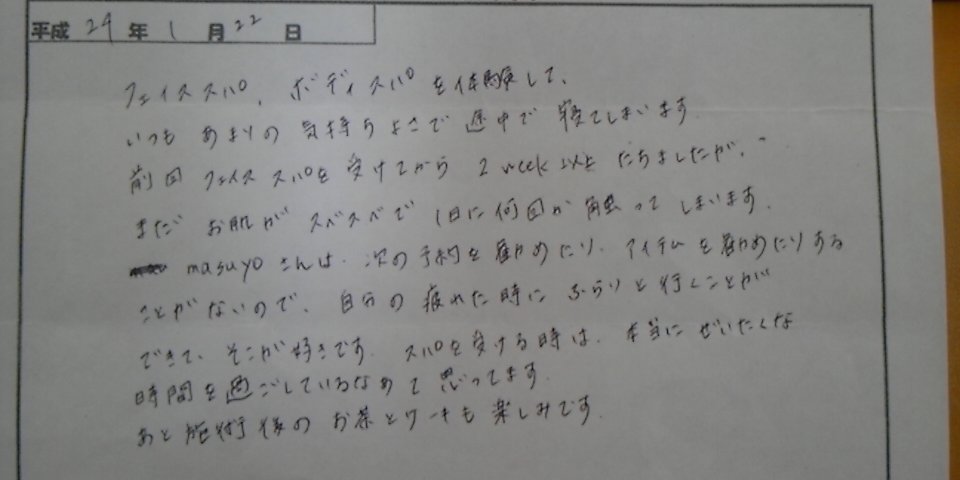 平成 24 年 1 月 22 日
フェイススパ、ボディスパを体験して、
いつも あまりの 気持ちよさで 途中で 寝てしまいます
前回 フェイススパを 受けてから 2 week 以上 たちましたが、
まだ お肌が スベスベで 1日に何回か 触って しまいます.
masuyoさんは、次の予約を勧めたり、アイテムを勧めたりする
ことがないので、自分の疲れた時に ふらりと行くことが
できて、そこが好きです. スパを受ける時は、本当に ぜいたくな
時間を過ごしているなあて 思ってます.
あと 施術後の お茶とケーキも 楽しみです.